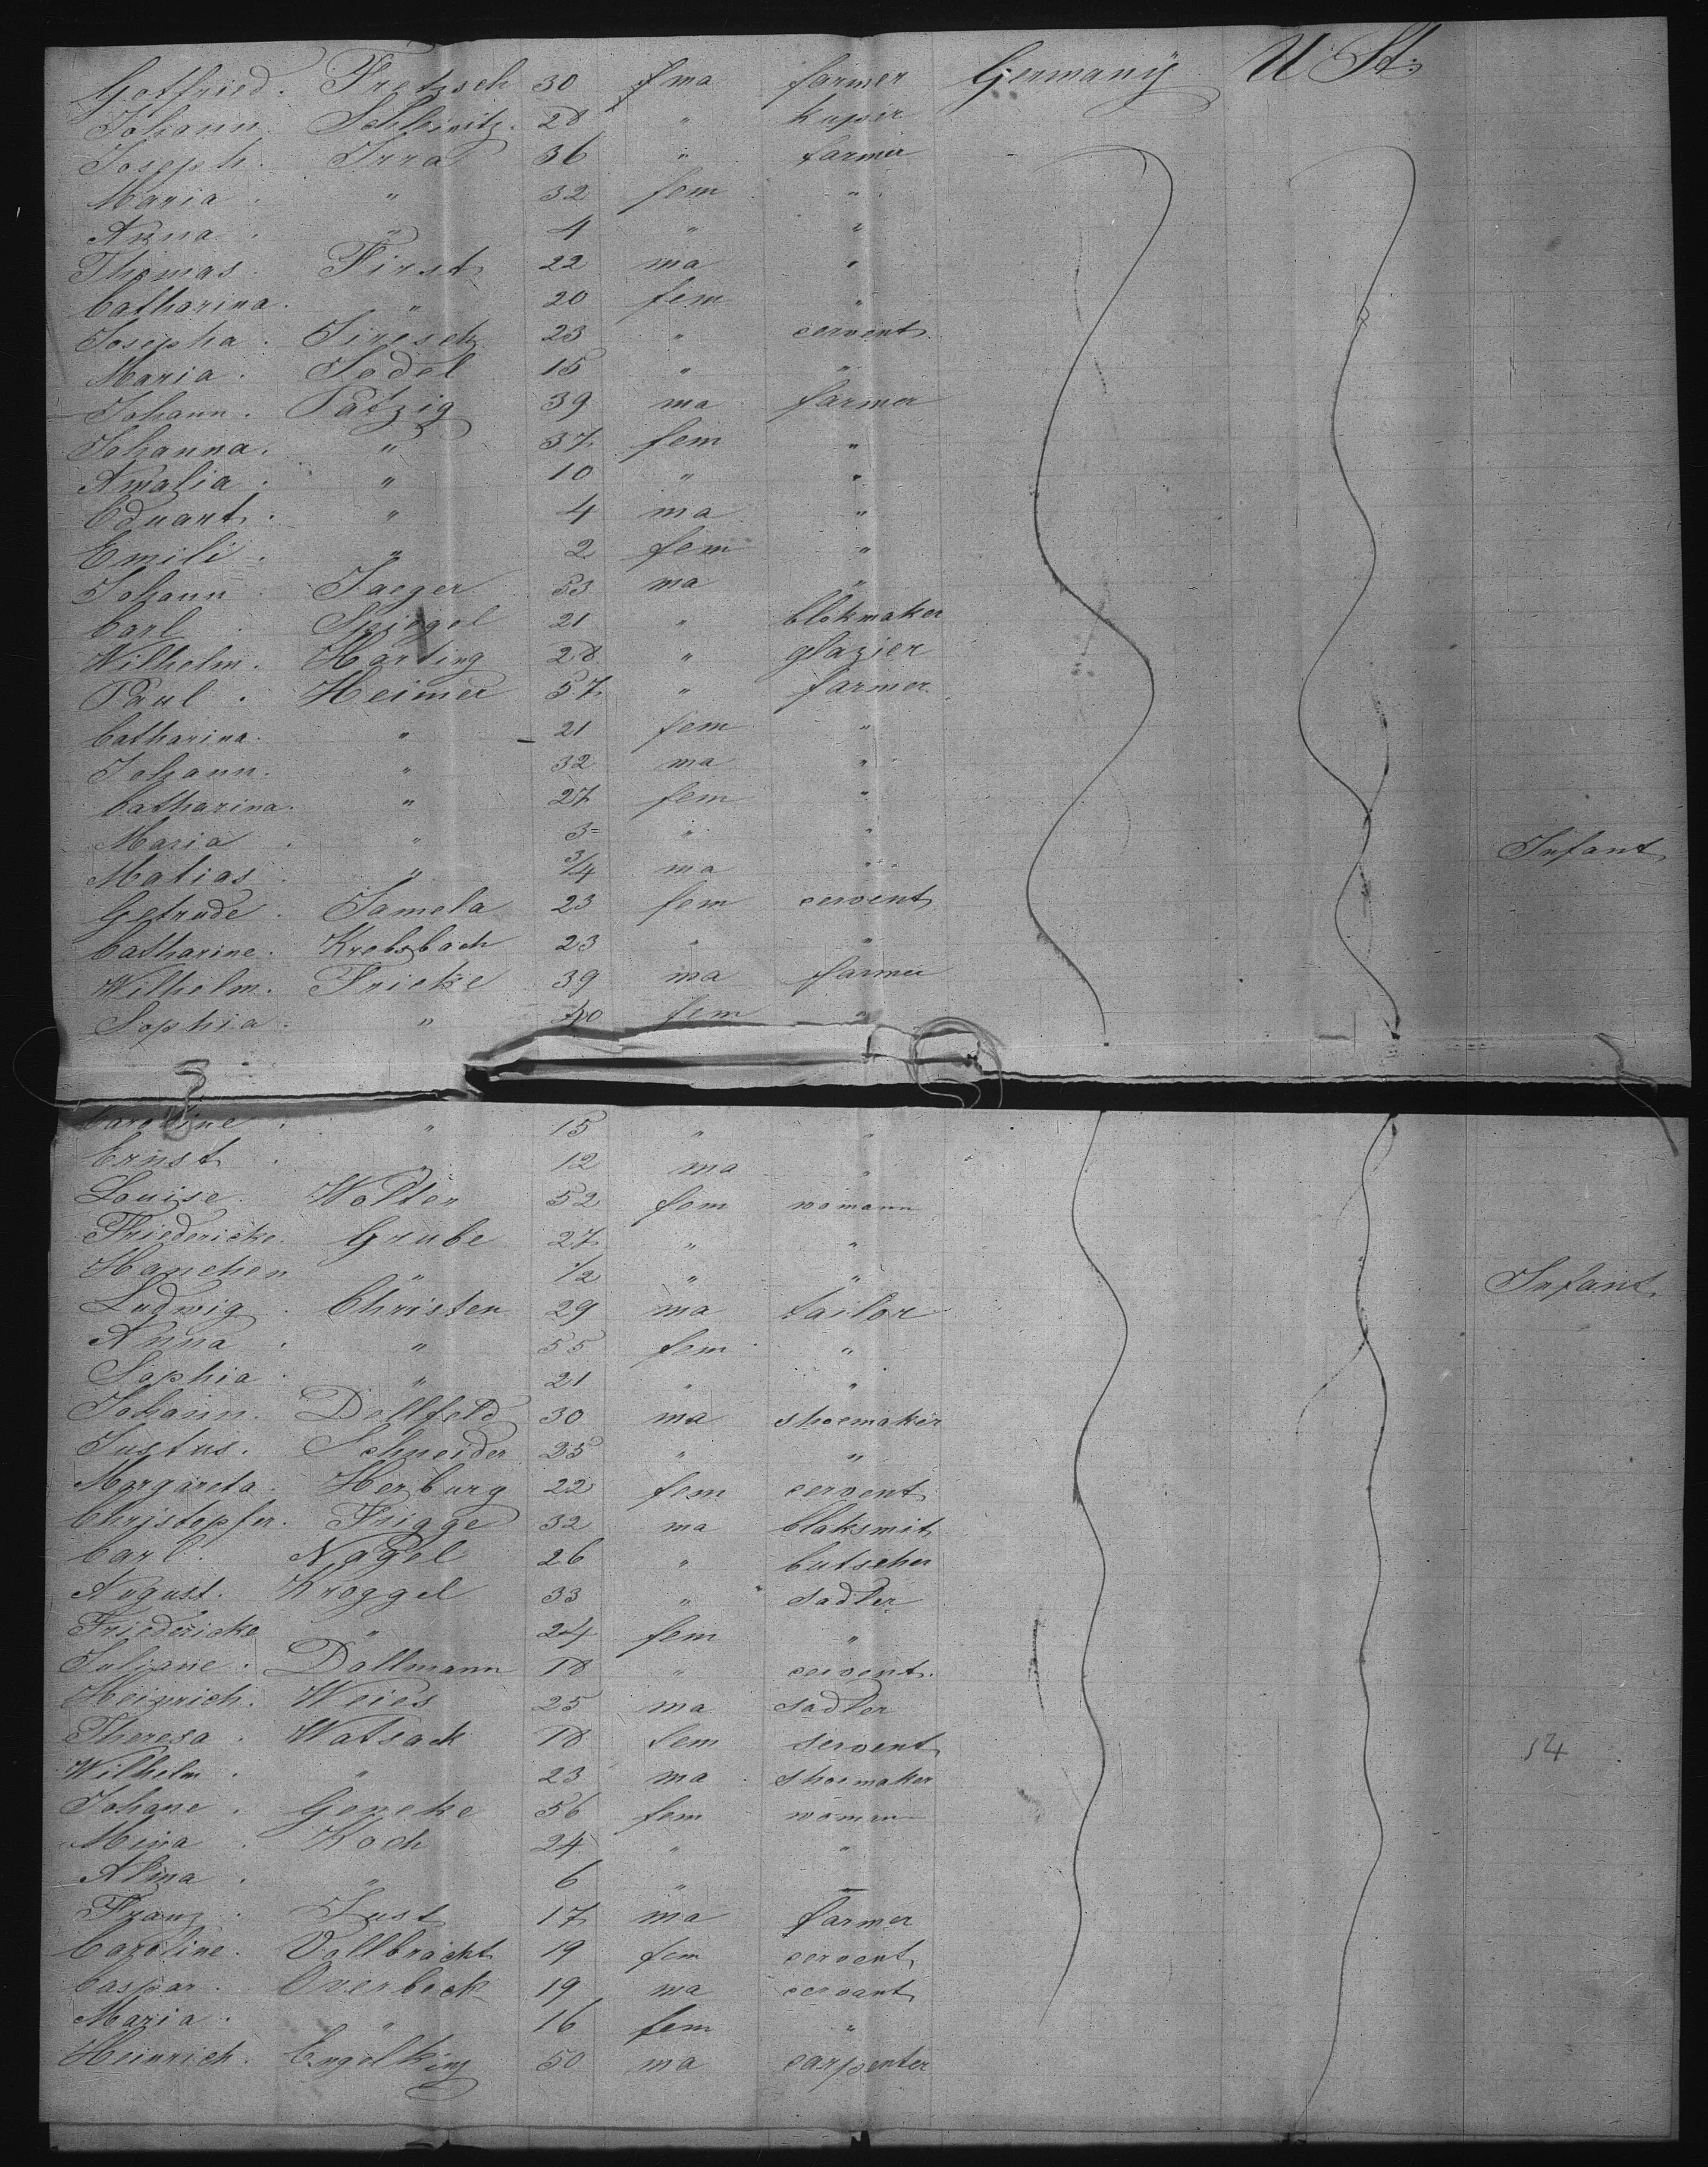 Gotfried. Fretzsch 30 ma farmer Germany U St:
Johann Schleinitz. 28 " kuper
Joseph. Irra 36 " farmer
Maria. " 32 fem "
Anna. " 4 " "
Thomas. First 22 ma "
Catharina. " 20 fem "
Josepha. Siresch 23 " cervent
Maria. Sedel 15 " "
Johann. Patzig 39 ma farmer
Johanna. " 37 fem "
Amalia. " 10 " "
Eduart. " 4 ma "
Emili. " 2 fem "
Johann Jaeger 53 ma "
Carl. Spiegel 21 " blokmaker
Wilhelm. Harting 28 " glazier
Paul. Heimer 57 " farmer
Catharina. " 21 fem "
Johann. " 32 ma "
Catharina. " 27 fem "
Maria. " 3 " "
Matias. " 3/4 ma " Infant
Getrude. Samela 23 fem cervent
Catharine. Krebsbach 23 " "
Wilhelm. Fricke 39 ma farmer
Sophia. " 40 fem "
Caroline. " 15 " "
Ernst. " 12 ma "
Louise. Wolter 52 fem womann
Friedericke. Grube 27 " "
Hanchen " 1/2 " " Infant
Ludwig. Christen 29 ma tailor
Anna. " 55 fem "
Sophia. " 21 " "
Johann. Dellfeld 30 ma shoemaker
Justus. Schneider 25 " "
Margareta. Herburg 22 fem cervent
Christopfer. Frigge 32 ma blaksmit
Carl. Nagel 26 " butscher
August. Kroggel 33 " sadler
Friedericke " 24 fem "
Juliane. Dollmann 18 " cervent
Heinrich. Weies 25 ma sadler
Theresa. Watsack 18 fem servent 54
Wilhelm. " 23 ma shoemaker
Johane. Geneke 56 fem women
Mina. Koch 24 " "
Alma. " 6 " —
Franz. Just 17 ma farmer
Caroline. Vollbracht 19 fem cervent
Caspar. Overbeck 19 ma cervant
Maria. " 16 fem "
Heinrich. Engelking 50 ma carpenter